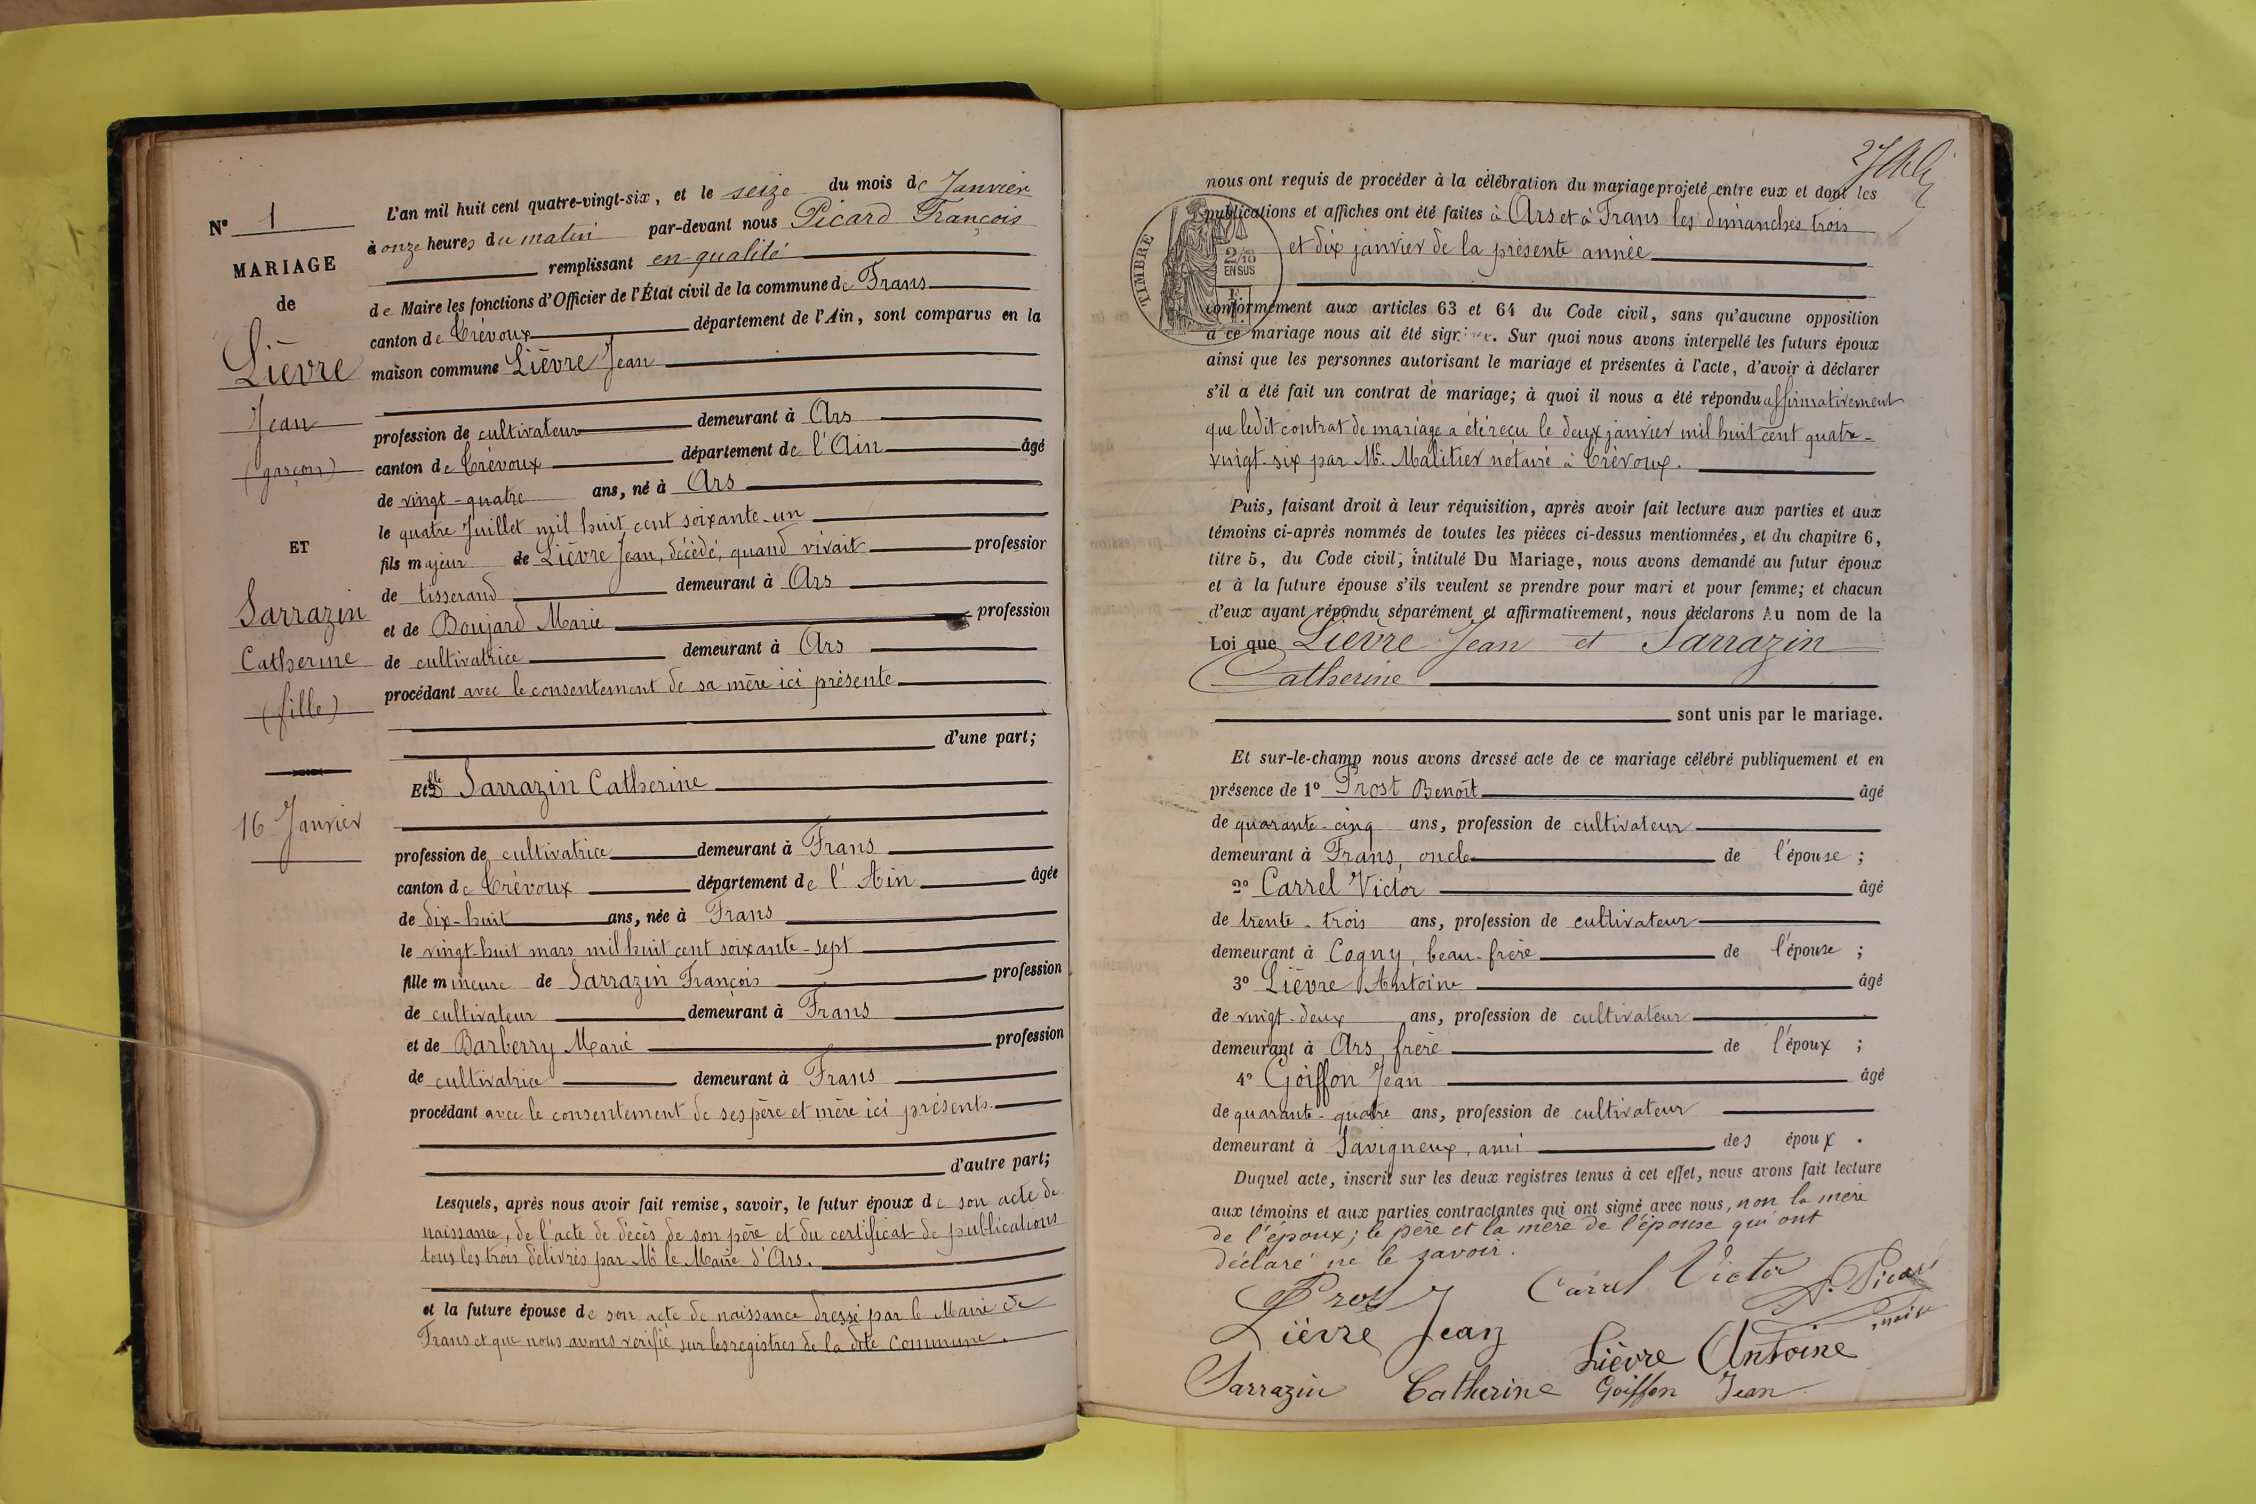 N° 1
MARIAGE
de
Lièvre
Jean
(garçon)
ET
Sarrazin
Catherine
(fille)
16 Janvier
L'an mil huit cent quatre-vingt-six, et le seize du mois de Janvier
à onze heures du matin par-devant nous Picard François
remplissant en qualité
de Maire les fonctions d'Officier de l'État civil de la commune de Frans
canton de Trévoux département de l'Ain, sont comparus en la
maison commune Lièvre Jean
profession de cultivateur demeurant à Ars
canton de Trévoux département de l'Ain âgé
de vingt-quatre ans, né à Ars
le quatre Juillet mil huit cent soixante-un
fils majeur de Lièvre Jean, décédé, quand vivait profession
de tisserand demeurant à Ars
et de Boujard Marie profession
de cultivatrice demeurant à Ars
procédant avec le consentement de sa mère ici présente
d'une part;
Et Dlle Sarrazin Catherine
profession de cultivatrice demeurant à Frans
canton de Trévoux département de l'Ain âgée
de dix-huit ans, née à Frans
le vingt-huit mars mil huit cent soixante-sept
fille mineure de Sarrazin François profession
de cultivateur demeurant à Frans
et de Barberry Marie profession
de cultivatrice demeurant à Frans
procédant avec le consentement de ses père et mère ici présents.
d'autre part;
Lesquels, après nous avoir fait remise, savoir, le futur époux de son acte de
naissance, de l'acte de décès de son père et du certificat de publications
tous les trois délivrés par Mr le Maire d'Ars.
et la future épouse de son acte de naissance dressé par le Maire de
Frans et que nous avons vérifié sur les registres de la dite commune.
nous ont requis de procéder à la célébration du mariage projeté entre eux et dont les
publications et affiches ont été faites à Ars et à Frans les dimanches trois
et dix janvier de la présente année
TIMBRE
2/10
EN SUS
conformément aux articles 63 et 64 du Code civil, sans qu'aucune opposition
à ce mariage nous ait été signifiée. Sur quoi nous avons interpellé les futurs époux
ainsi que les personnes autorisant le mariage et présentes à l'acte, d'avoir à déclarer
s'il a été fait un contrat de mariage; à quoi il nous a été répondu affirmativement
que ledit contrat de mariage a été reçu le deux janvier mil huit cent quatre-
vingt-six par Me Malitier notaire à Trévoux.
Puis, faisant droit à leur réquisition, après avoir fait lecture aux parties et aux
témoins ci-après nommés de toutes les pièces ci-dessus mentionnées, et du chapitre 6,
titre 5, du Code civil, intitulé Du Mariage, nous avons demandé au futur époux
et à la future épouse s'ils veulent se prendre pour mari et pour femme; et chacun
d'eux ayant répondu séparément et affirmativement, nous déclarons Au nom de la
Loi que Lièvre Jean et Sarrazin
Catherine
sont unis par le mariage.
Et sur-le-champ nous avons dressé acte de ce mariage célébré publiquement et en
présence de 1° Prost Benoît âgé
de quarante-cinq ans, profession de cultivateur
demeurant à Frans, oncle de l'épouse;
2° Carrel Victor âgé
de trente-trois ans, profession de cultivateur
demeurant à Cogny, beau-frère de l'épouse;
3° Lièvre Antoine âgé
de vingt-deux ans, profession de cultivateur
demeurant à Ars, frère de l'époux;
4° Goiffon Jean âgé
de quarante-quatre ans, profession de cultivateur
demeurant à Savigneux, ami des époux.
Duquel acte, inscrit sur les deux registres tenus à cet effet, nous avons fait lecture
aux témoins et aux parties contractantes qui ont signé avec nous, non la mère
de l'époux; le père et la mère de l'épouse qui ont
déclaré ne le savoir.
Prost Carrel Victor F. Picard
Lièvre Jean maire
Lièvre Antoine
Sarrazin Catherine Goiffon Jean